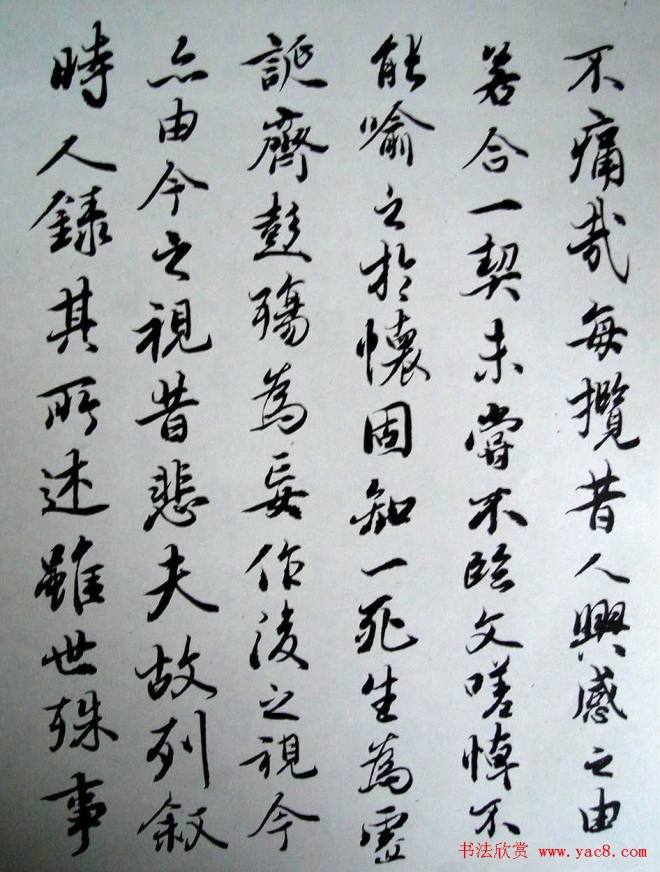 不痛哉每攬昔人興感之由
若合一契未嘗不臨文嗟悼不
能喻之於懷固知一死生為虛
誕齊彭殤為妄作後之視今
亦由今之視昔悲夫故列敘
時人錄其所述雖世殊事
书法欣赏 www.yac8.com